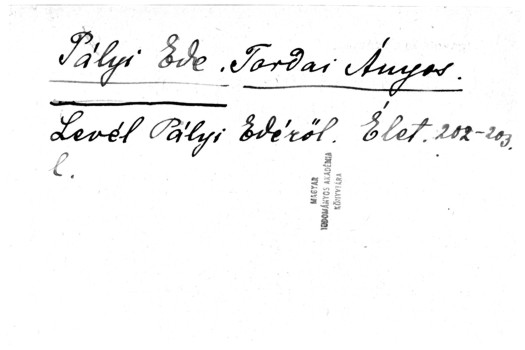 Pályi Ede. Tordai Ányos.
Levél Pályi Edéről. Élet. 202-203.
l.
MAGYAR
TUDOMÁNYOS AKADÉMIA
KÖNYVTÁRA